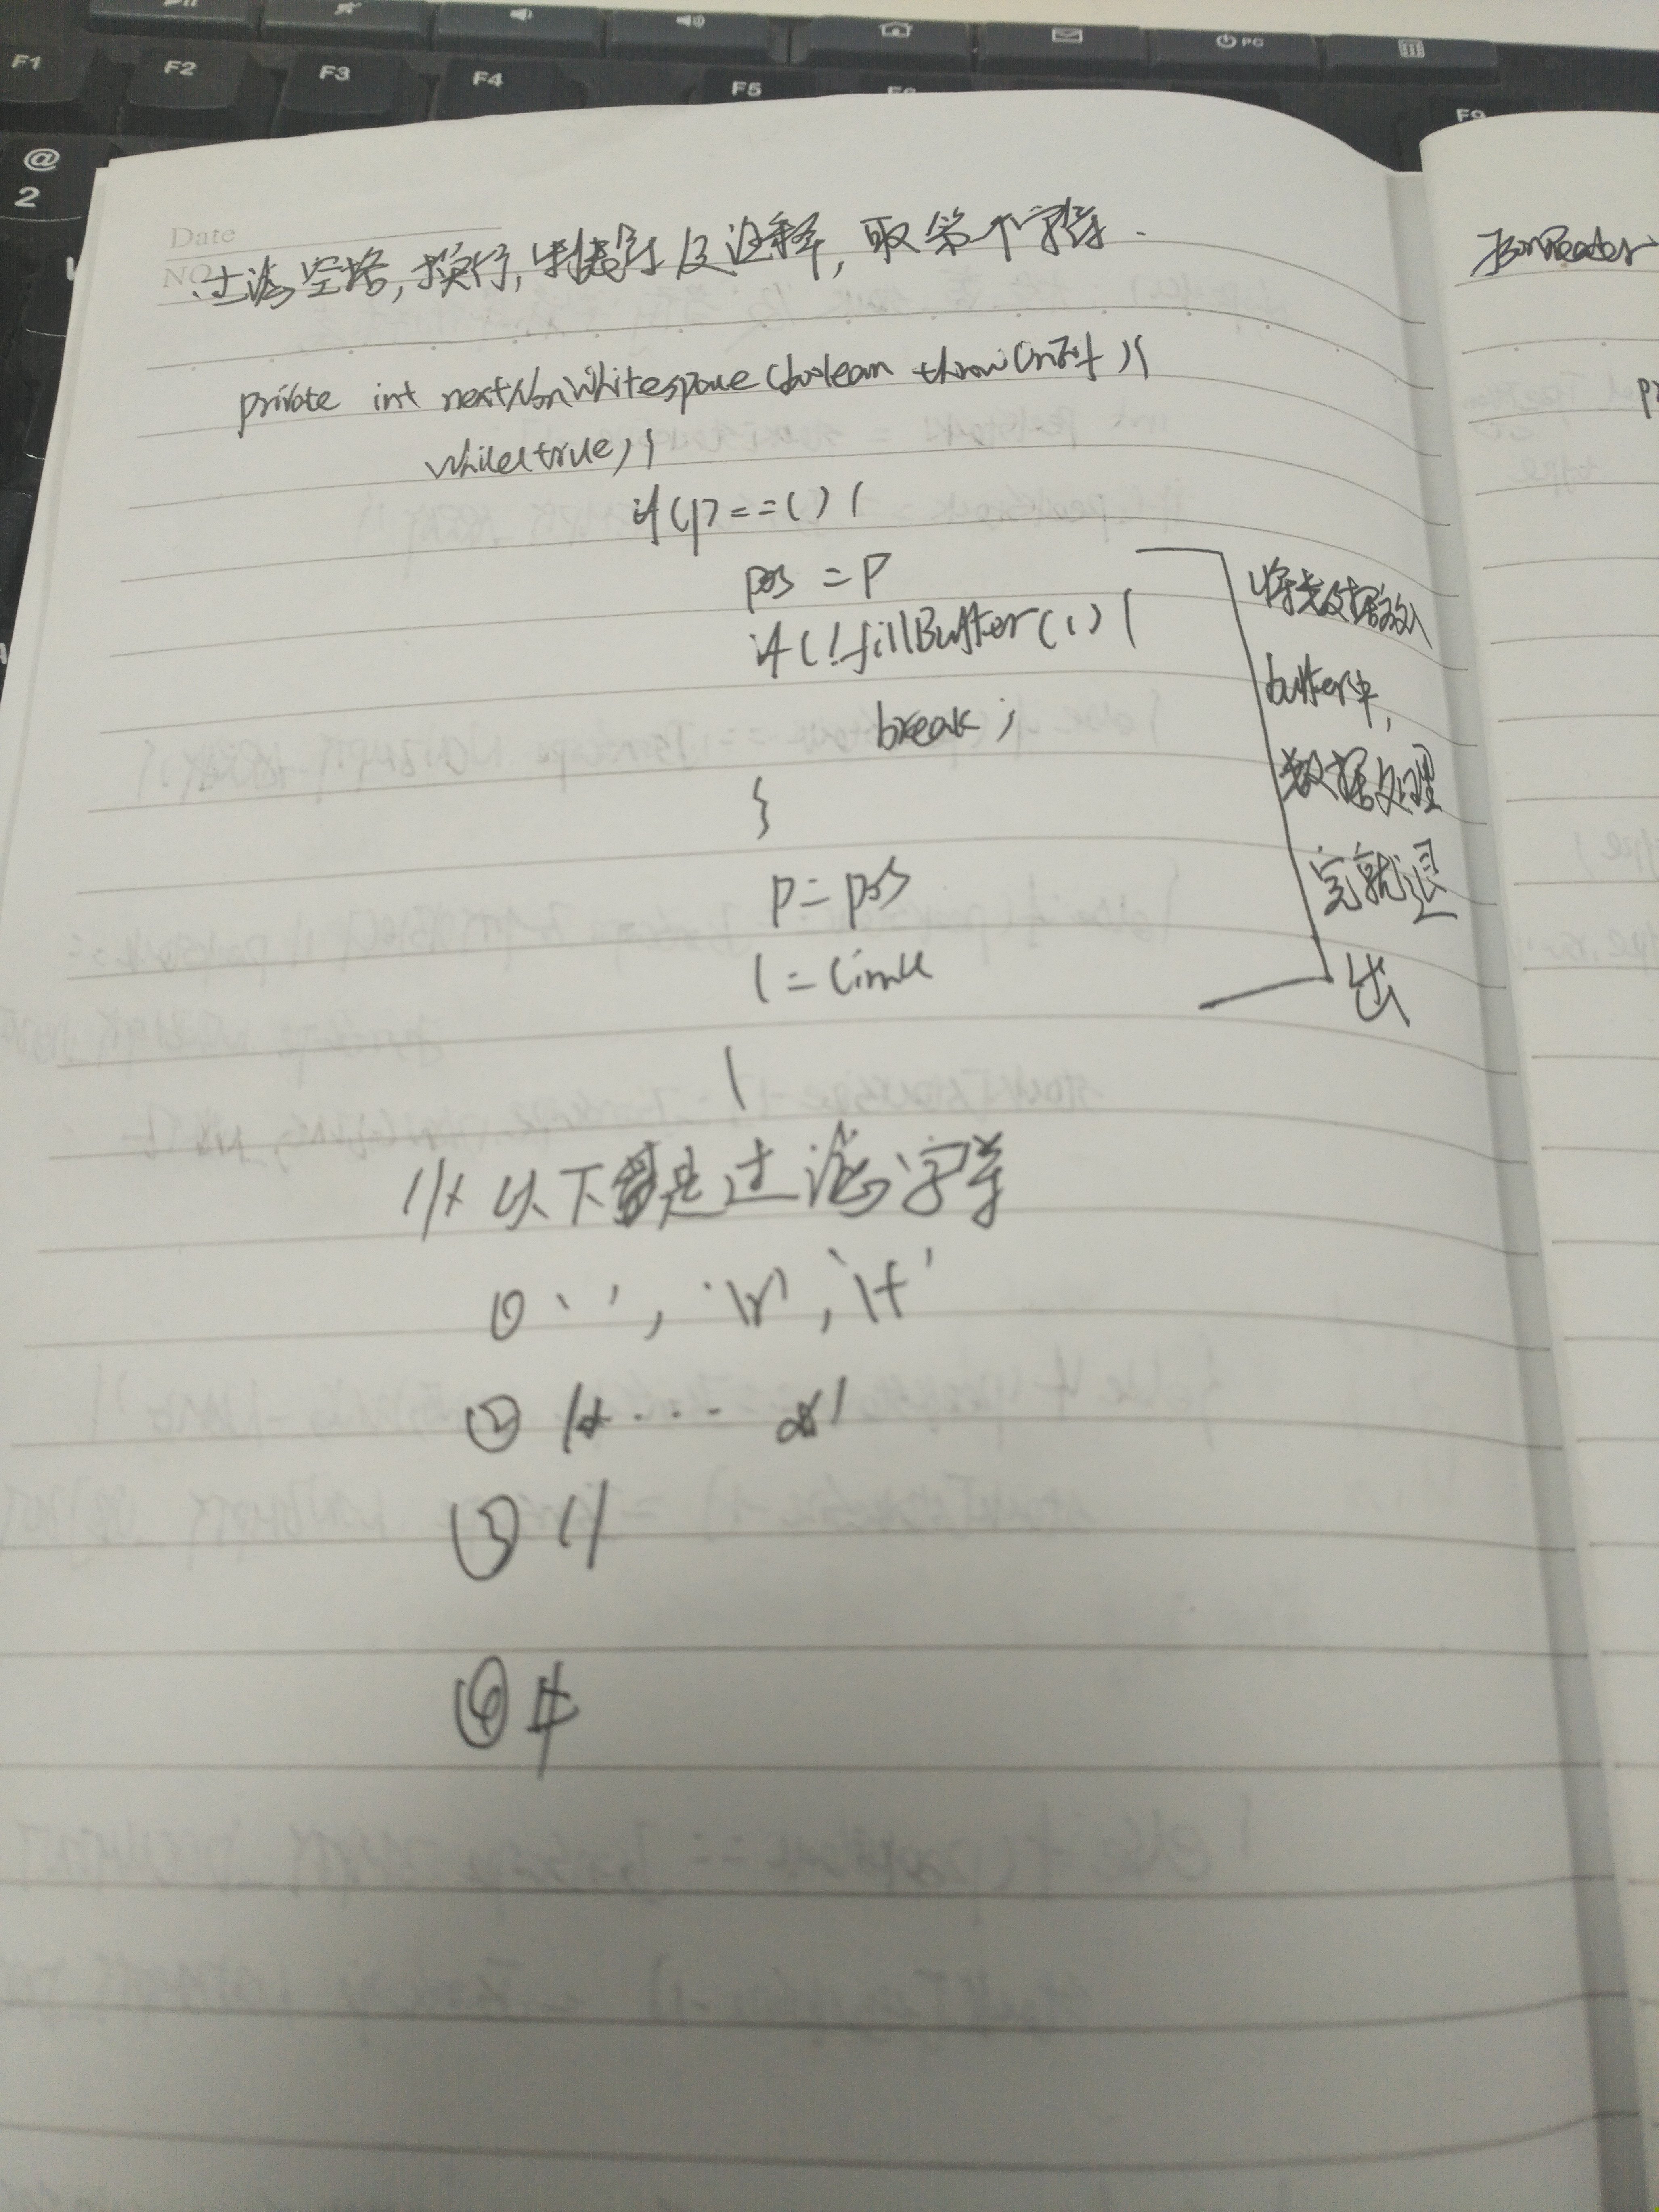 F1
F2
F3
F4
F5
F9
@
2
PC
Date
NO
过滤空格,换行,制表符及注释,取第一个字符.
private int nextNonWhitespace(boolean throwOnEof){
while(true){
if(p==l){
pos = p
if(!fillBuffer(1){
break;
}
p = pos
l = limit
}
将数据放入
buffer中,
数据处理
完就退
出
//* 以下都是过滤字符
① ' ', '\r', '\t'
② /* ... */
③ //
④ #
JsonReader